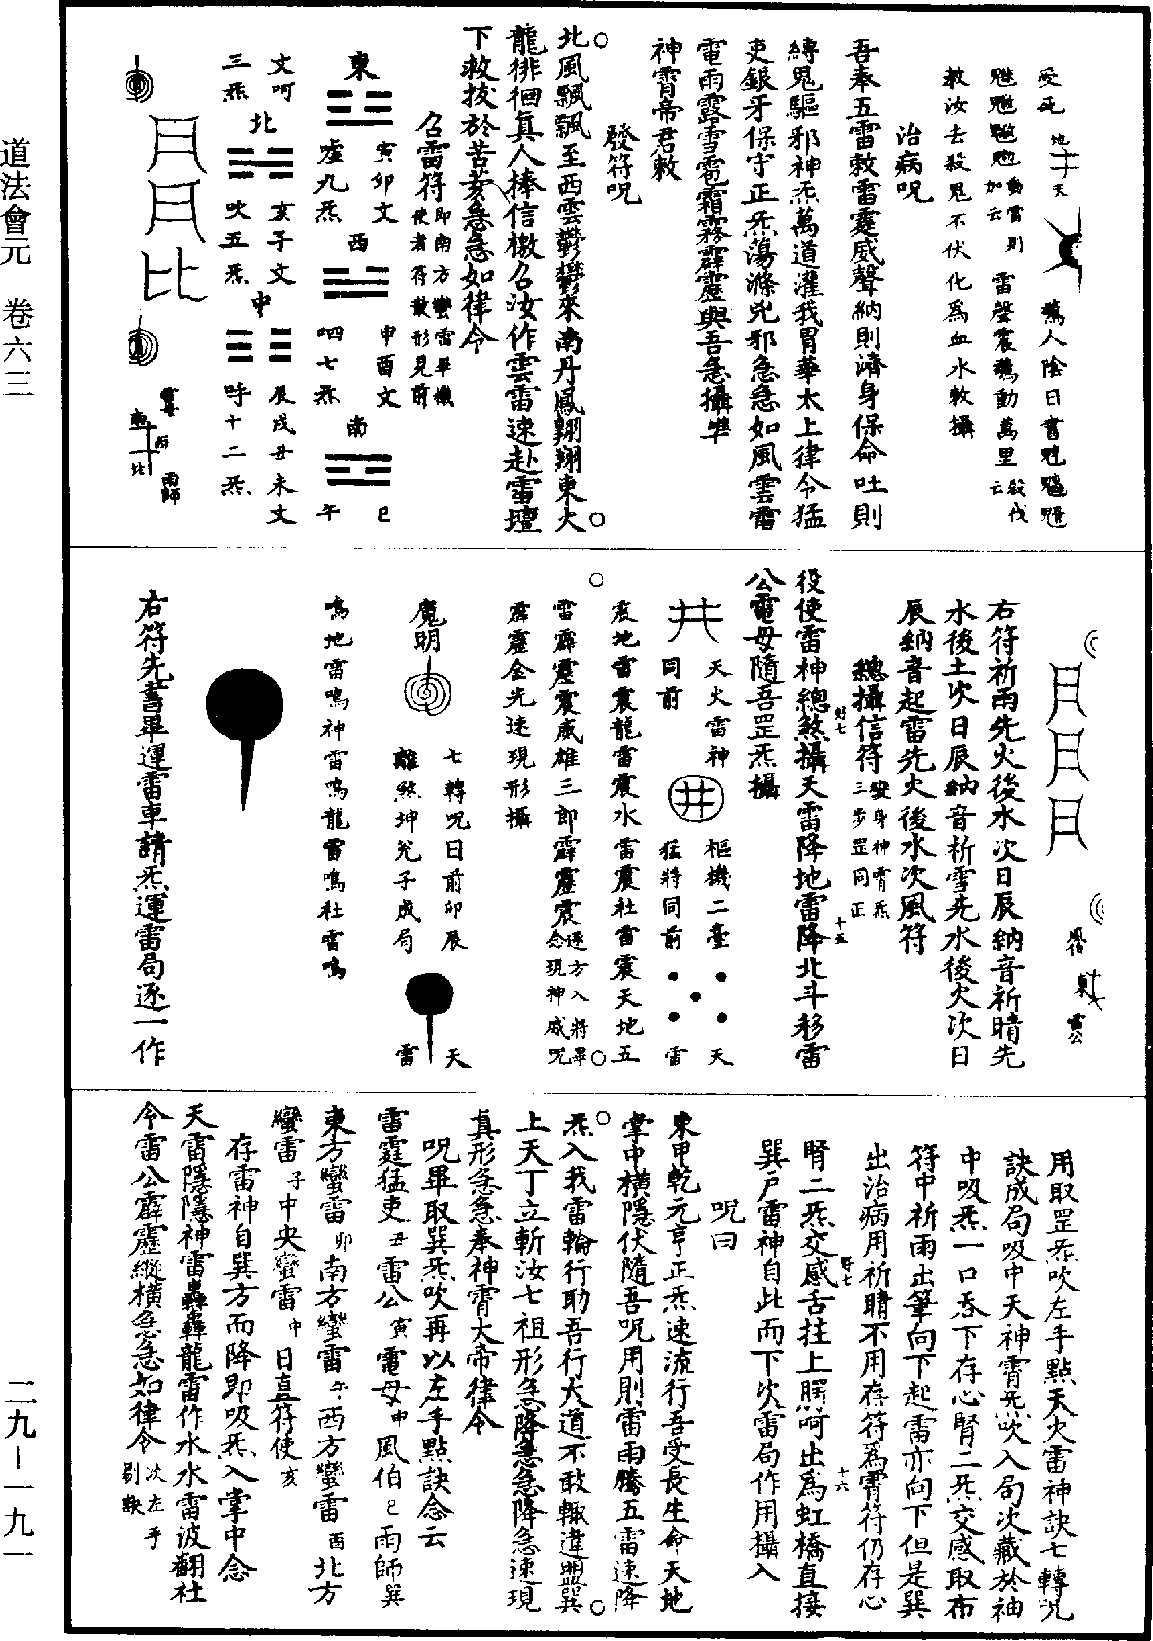 道法會元 卷六三
二九－一九一
天
驚人陰日書
動雷則
加云
雷聲震驚動萬里
殺伐
云
敕汝去殺鬼不伏化為血水敕攝
治病呪
吾奉五雷敕雷霆威聲納則濟身保命吐則
縛鬼驅邪神炁萬道濯我胃華太上律令猛
吏銀牙保守正炁蕩滌兇邪急急如風雲雷
電雨露雪雹霜霧霹靂與吾急攝準
神霄帝君敕
發符呪
北風飄飄至西雲鬱鬱來南丹鳳翱翔東火
龍徘徊真人捧信檄召汝作雲雷速赴雷壇
下救拔於苦荄急急如律令
召雷符即南方蠻雷畢機使者符散形見前
東 寅卯文 噓九炁
西 申酉文 呬七炁
南 巳午
文呵三炁
北 亥子文 吹五炁
中 辰戌丑未文 呼十二炁
雨師
右符祈雨先火後水次日辰納音祈晴先
水後土次日辰納音祈雪先水後火次日
辰納音起雷先火後水次風符
風伯
雷公
總攝信符變身神霄炁三步罡同正
役使雷神總煞攝天雷降地雷降北斗移雷
公電母隨吾罡炁攝
天火雷神 樞機二臺 天
同前 猛將同前 雷
震地雷震龍雷震水雷震社雷震天地五
雷霹靂震威雄三郎霹靂震逐方入將畢念現神威呪
霹靂金光速現形攝
魔明
七轉呪曰前卯辰 天
離煞坤兇子成局 雷
鳴地雷鳴神雷鳴龍雷鳴社雷鳴
右符先書畢運雷車請炁運雷局逐一作
用取罡炁吹左手點天火雷神訣七轉呪
訣成局吸中天神霄炁吹入局次藏於袖
中吸炁一口吞下存心腎二炁交感取布
符中祈雨出筆向下起雷亦向下但是巽
出治病用祈晴不用存符為霄符仍存心
腎二炁交感舌拄上腭呵出為虹橋直接
巽戶雷神自此而下次雷局作用攝入
呪曰
東甲乾元亨正炁速流行吾受長生命天地
掌中橫隱伏隨吾呪用則雷雨騰五雷速降
炁入我雷輪行助吾行大道不敢輒違盟巽
上天丁立斬汝七祖形急降急急降急速現
真形急急奉神霄大帝律令
呪畢取巽炁吹再以左手點訣念云
雷霆猛吏丑雷公寅電母申風伯巳雨師巽
東方蠻雷卯南方蠻雷午西方蠻雷酉北方
蠻雷子中央蠻雷中日直符使亥
存雷神自巽方而降即吸炁入掌中念
天雷隱隱神雷轟轟龍雷作水水雷波翻社
令雷公霹靂縱橫急急如律令次左手剔訣